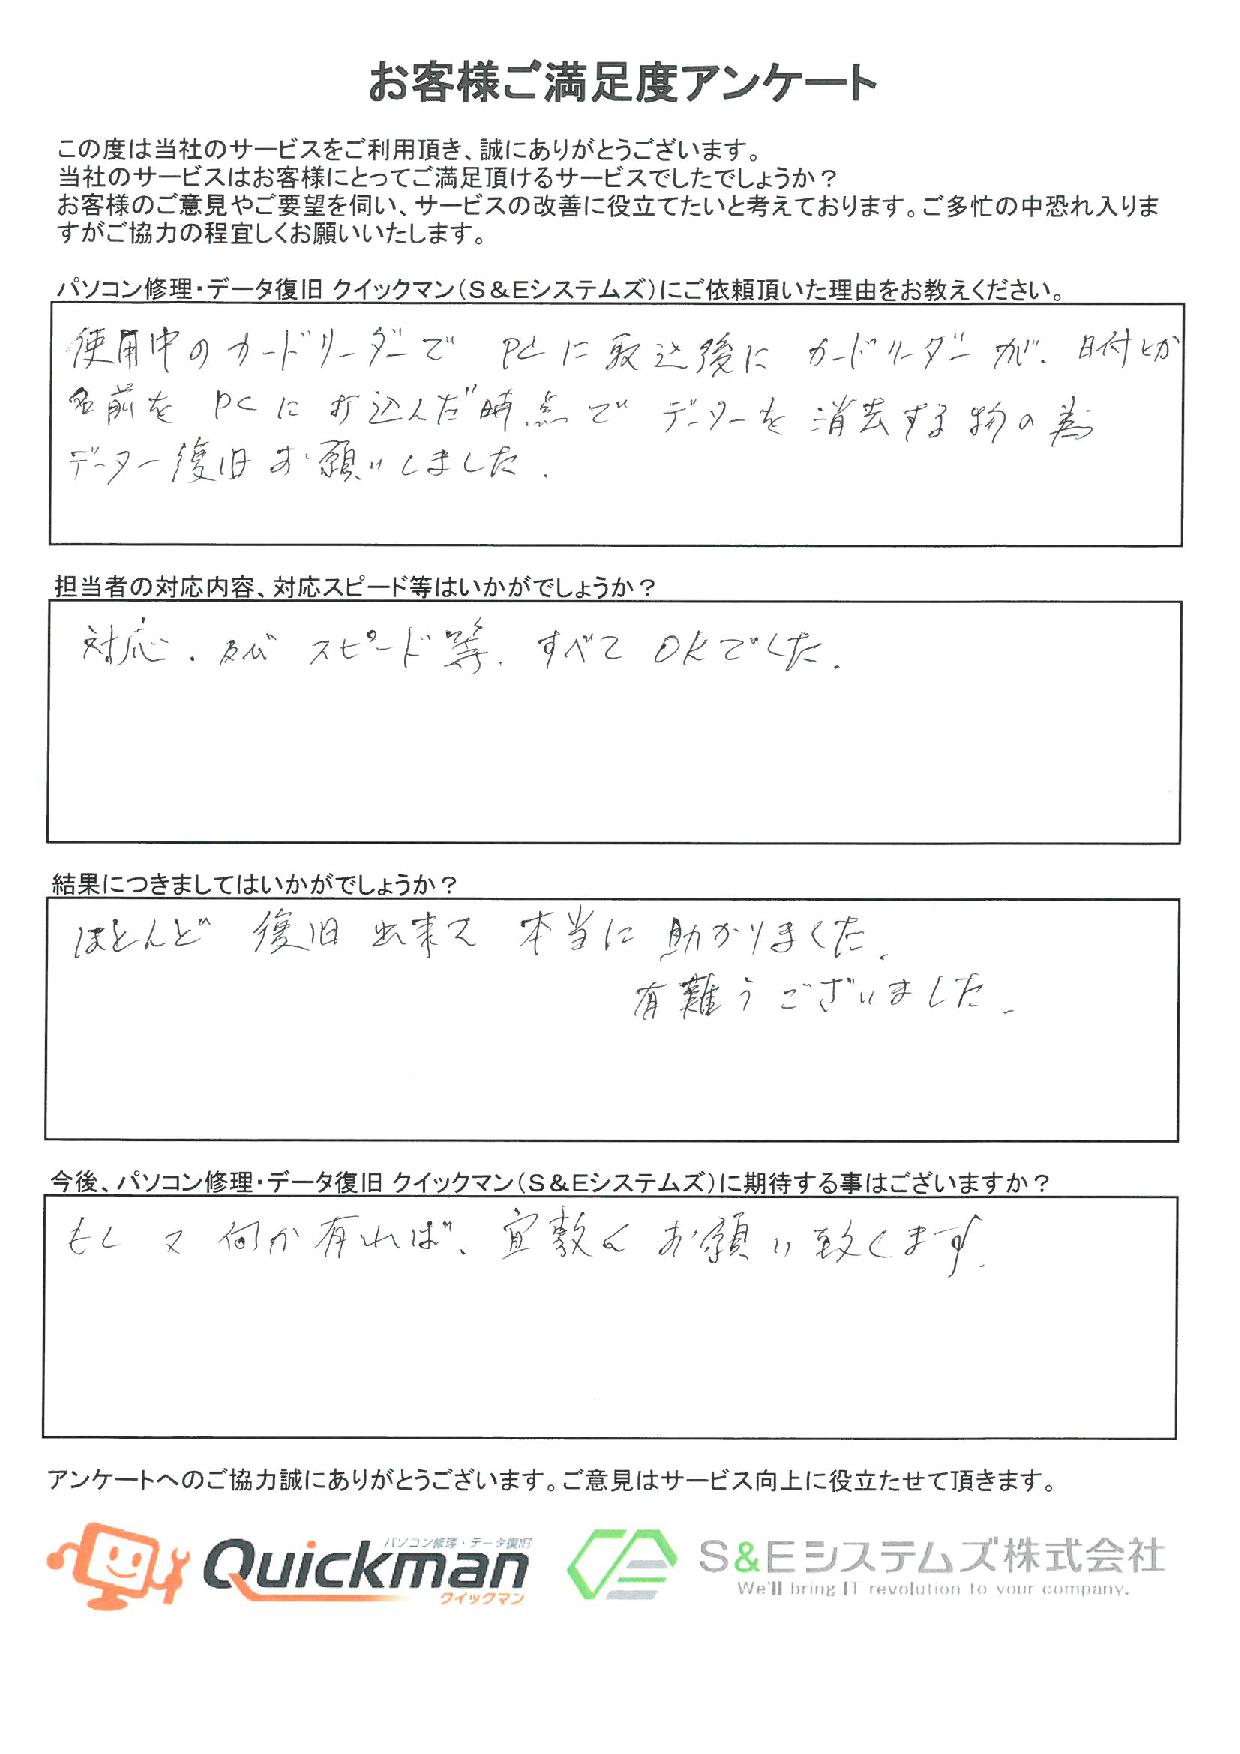 お客様ご満足度アンケート
この度は当社のサービスをご利用頂き、誠にありがとうございます。
当社のサービスはお客様にとってご満足頂けるサービスでしたでしょうか？
お客様のご意見やご要望を伺い、サービスの改善に役立てたいと考えております。ご多忙の中恐れ入りま
すがご協力の程宜しくお願いいたします。
パソコン修理・データ復旧 クイックマン（S＆Eシステムズ）にご依頼頂いた理由をお教えください。
使用中のカードリーダーで PCに取込後に カードリーダーが、日付とか
名前を PCに打込んだ時点で データーを消去する物の為
データー復旧お願いしました.
担当者の対応内容、対応スピード等はいかがでしょうか？
対応、及び スピード等、すべて OKでした.
結果につきましてはいかがでしょうか？
ほとんど 復旧 出来て 本当に 助かりました.
有難うございました.
今後、パソコン修理・データ復旧 クイックマン（S＆Eシステムズ）に期待する事はございますか？
もし又 何か有れば、宜敷く お願い致します.
アンケートへのご協力誠にありがとうございます。ご意見はサービス向上に役立たせて頂きます。
パソコン修理・データ復旧
Quickman
クイックマン
S&Eシステムズ株式会社
We'll bring IT revolution to your company.